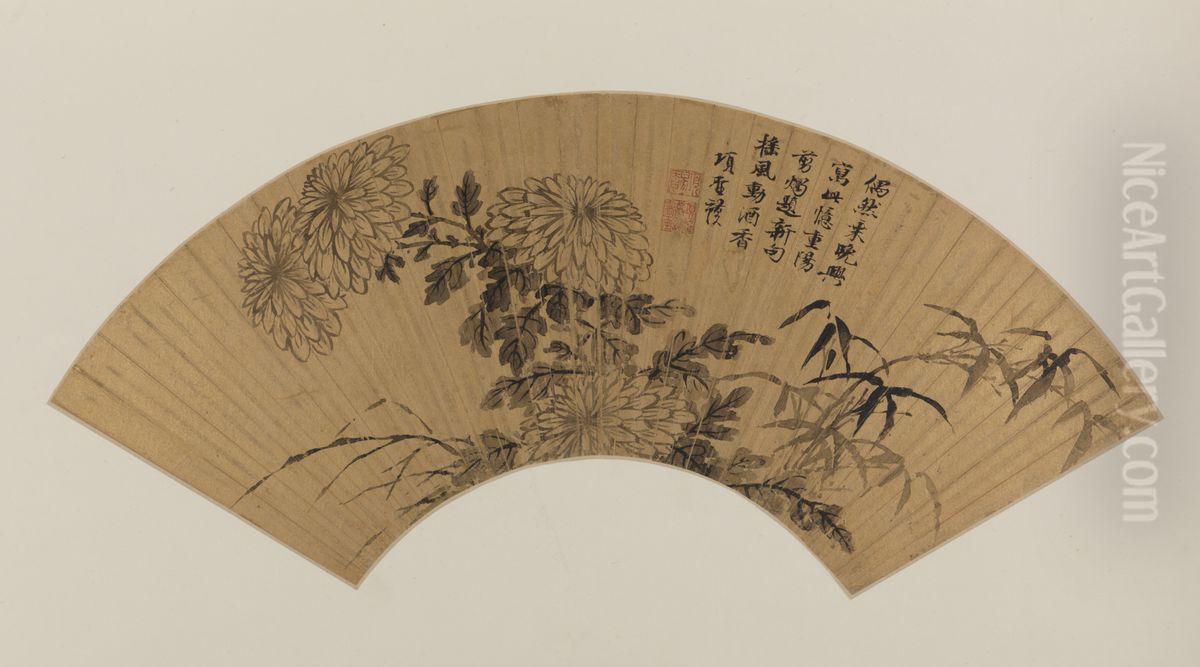 偶然乘晚興
寫此憶重陽
剪燭題新句
搖風動酒香
項聖謨
NiceArtGallery.com